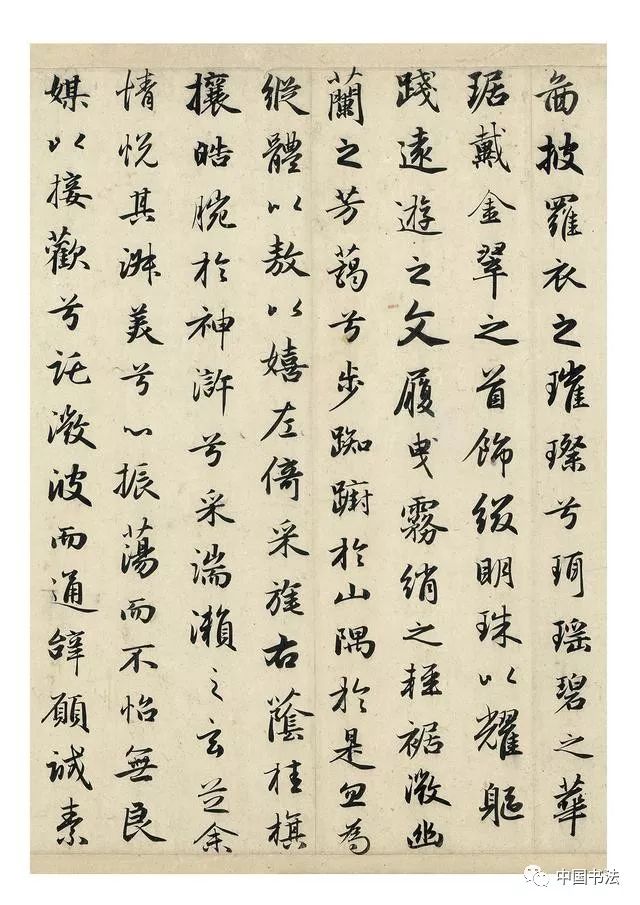 啚披羅衣之璀璨兮珥瑶碧之華
琚戴金翠之首飾綴明珠以耀軀
踐遠遊之文履曳霧綃之輕裾微幽
蘭之芳藹兮步踟躕於山隅於是忽為
縱體以敖以嬉左倚采旄右蔭桂旗
攘皓腕於神滸兮采湍瀨之玄芝余
情悦其淑美兮心振蕩而不怡無良
媒以接歡兮託微波而通辭願誠素
中国书法